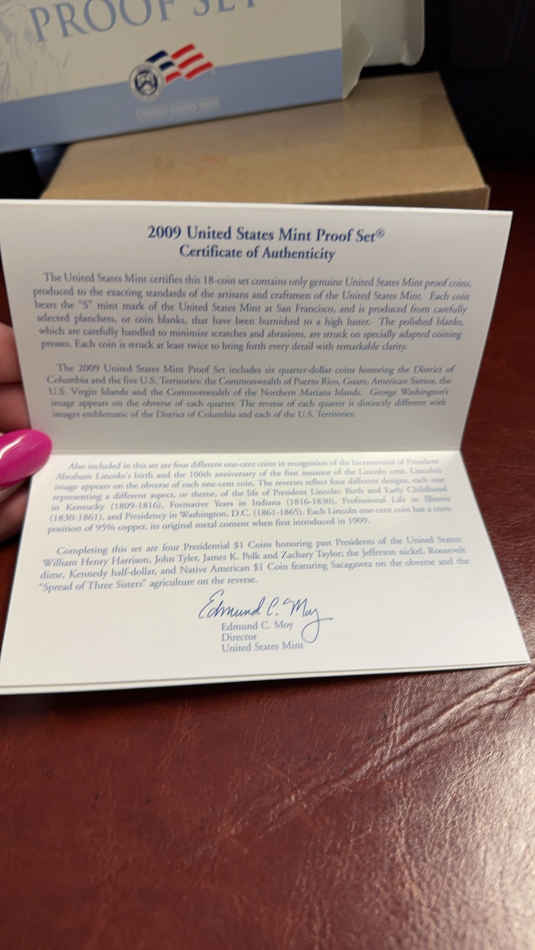 PROOF SET
2009 United States Mint Proof Set®
Certificate of Authenticity
The United States Mint certifies this 18-coin set contains only genuine United States Mint proof coins,
produced to the exacting standards of the artisans and craftsmen of the United States Mint. Each coin
bears the "S" mint mark of the United States Mint at San Francisco, and is produced from carefully
selected planchets, or coin blanks, that have been burnished to a high luster. The polished blanks,
which are carefully handled to minimize scratches and abrasions, are struck on specially adapted coining
presses. Each coin is struck at least twice to bring forth every detail with remarkable clarity.
The 2009 United States Mint Proof Set includes six quarter-dollar coins honoring the District of
Columbia and the five U.S. Territories: the Commonwealth of Puerto Rico, Guam, American Samoa, the
U.S. Virgin Islands and the Commonwealth of the Northern Mariana Islands. George Washington's
image appears on the obverse of each quarter. The reverse of each quarter is distinctly different with
images emblematic of the District of Columbia and each of the U.S. Territories.
Also included in this set are four different one-cent coins in recognition of the bicentennial of President
Abraham Lincoln's birth and the 100th anniversary of the first issuance of the Lincoln cent. Lincoln's
image appears on the obverse of each one-cent coin. The reverses reflect four different designs, each one
representing a different aspect, or theme, of the life of President Lincoln: Birth and Early Childhood
in Kentucky (1809-1816), Formative Years in Indiana (1816-1830), Professional Life in Illinois
(1830-1861), and Presidency in Washington, D.C. (1861-1865). Each Lincoln one-cent coin has a com-
position of 95% copper, its original metal content when first introduced in 1909.
Completing this set are four Presidential $1 Coins honoring past Presidents of the United States:
William Henry Harrison, John Tyler, James K. Polk and Zachary Taylor; the Jefferson nickel, Roosevelt
dime, Kennedy half-dollar, and Native American $1 Coin featuring Sacagawea on the obverse and the
"Spread of Three Sisters" agriculture on the reverse.
Edmund C. Moy
Edmund C. Moy
Director
United States Mint